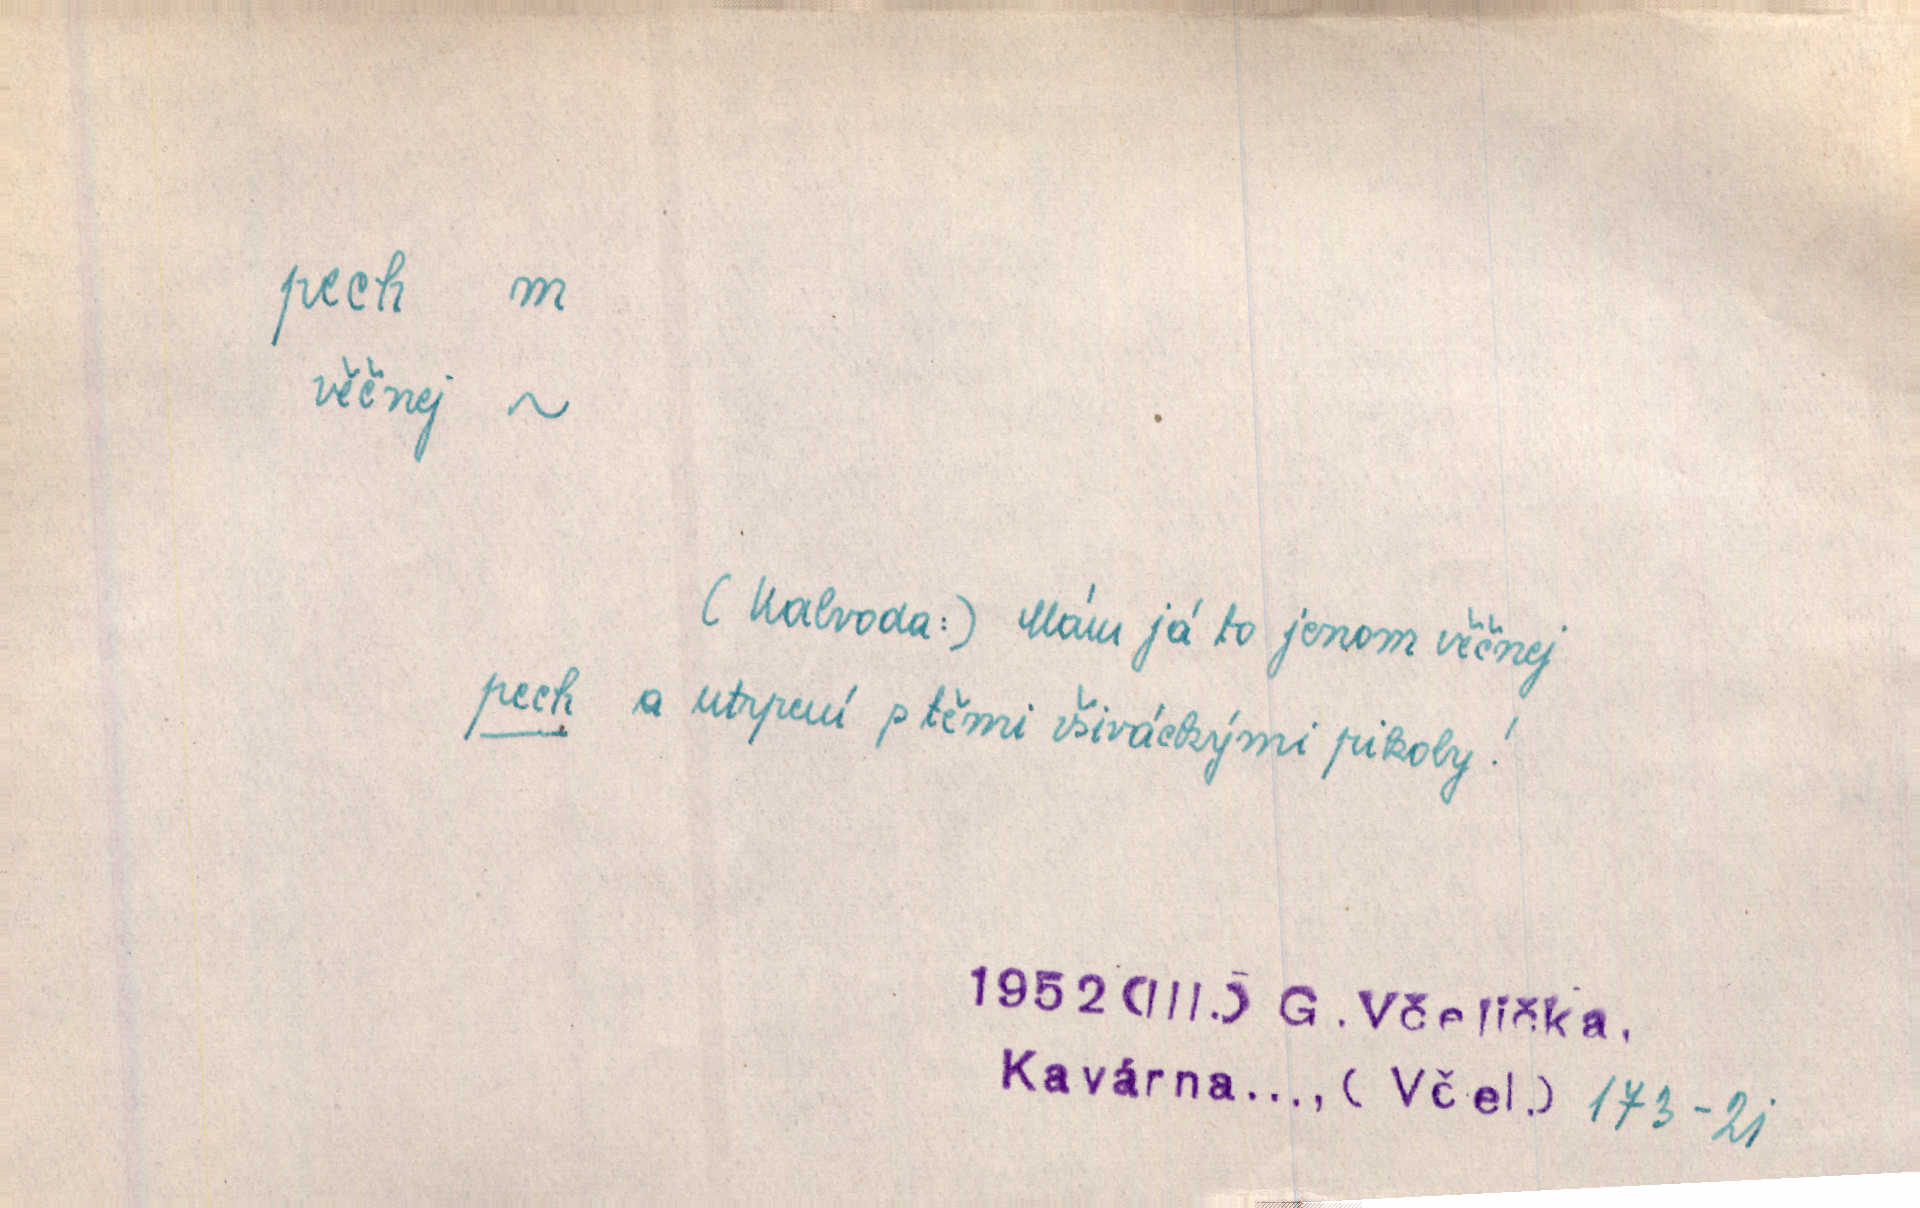 pech m
věčnej ~
(Kalvoda:) Mám já to jenom věčnej
pech a utrpení s těmi všiváckými pikoly!
1952 (III.) G. Včelička,
Kavárna..., (Včel.) 173-2j